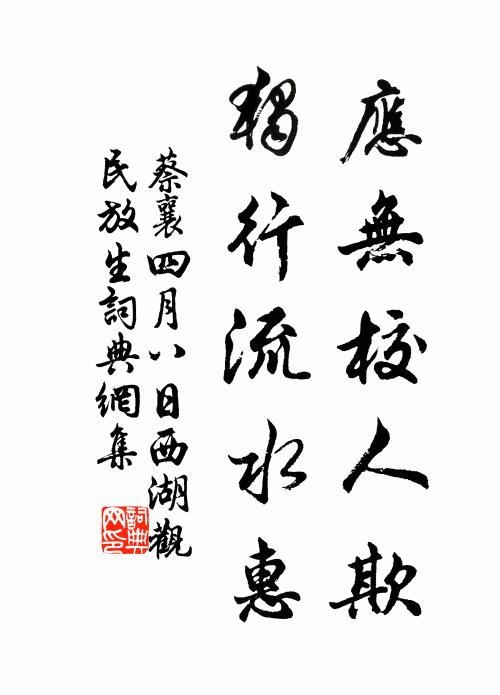 應無校人欺
獨行流水惠
蔡襄四月八日西湖觀
民放生詞典網集
詞典
网印